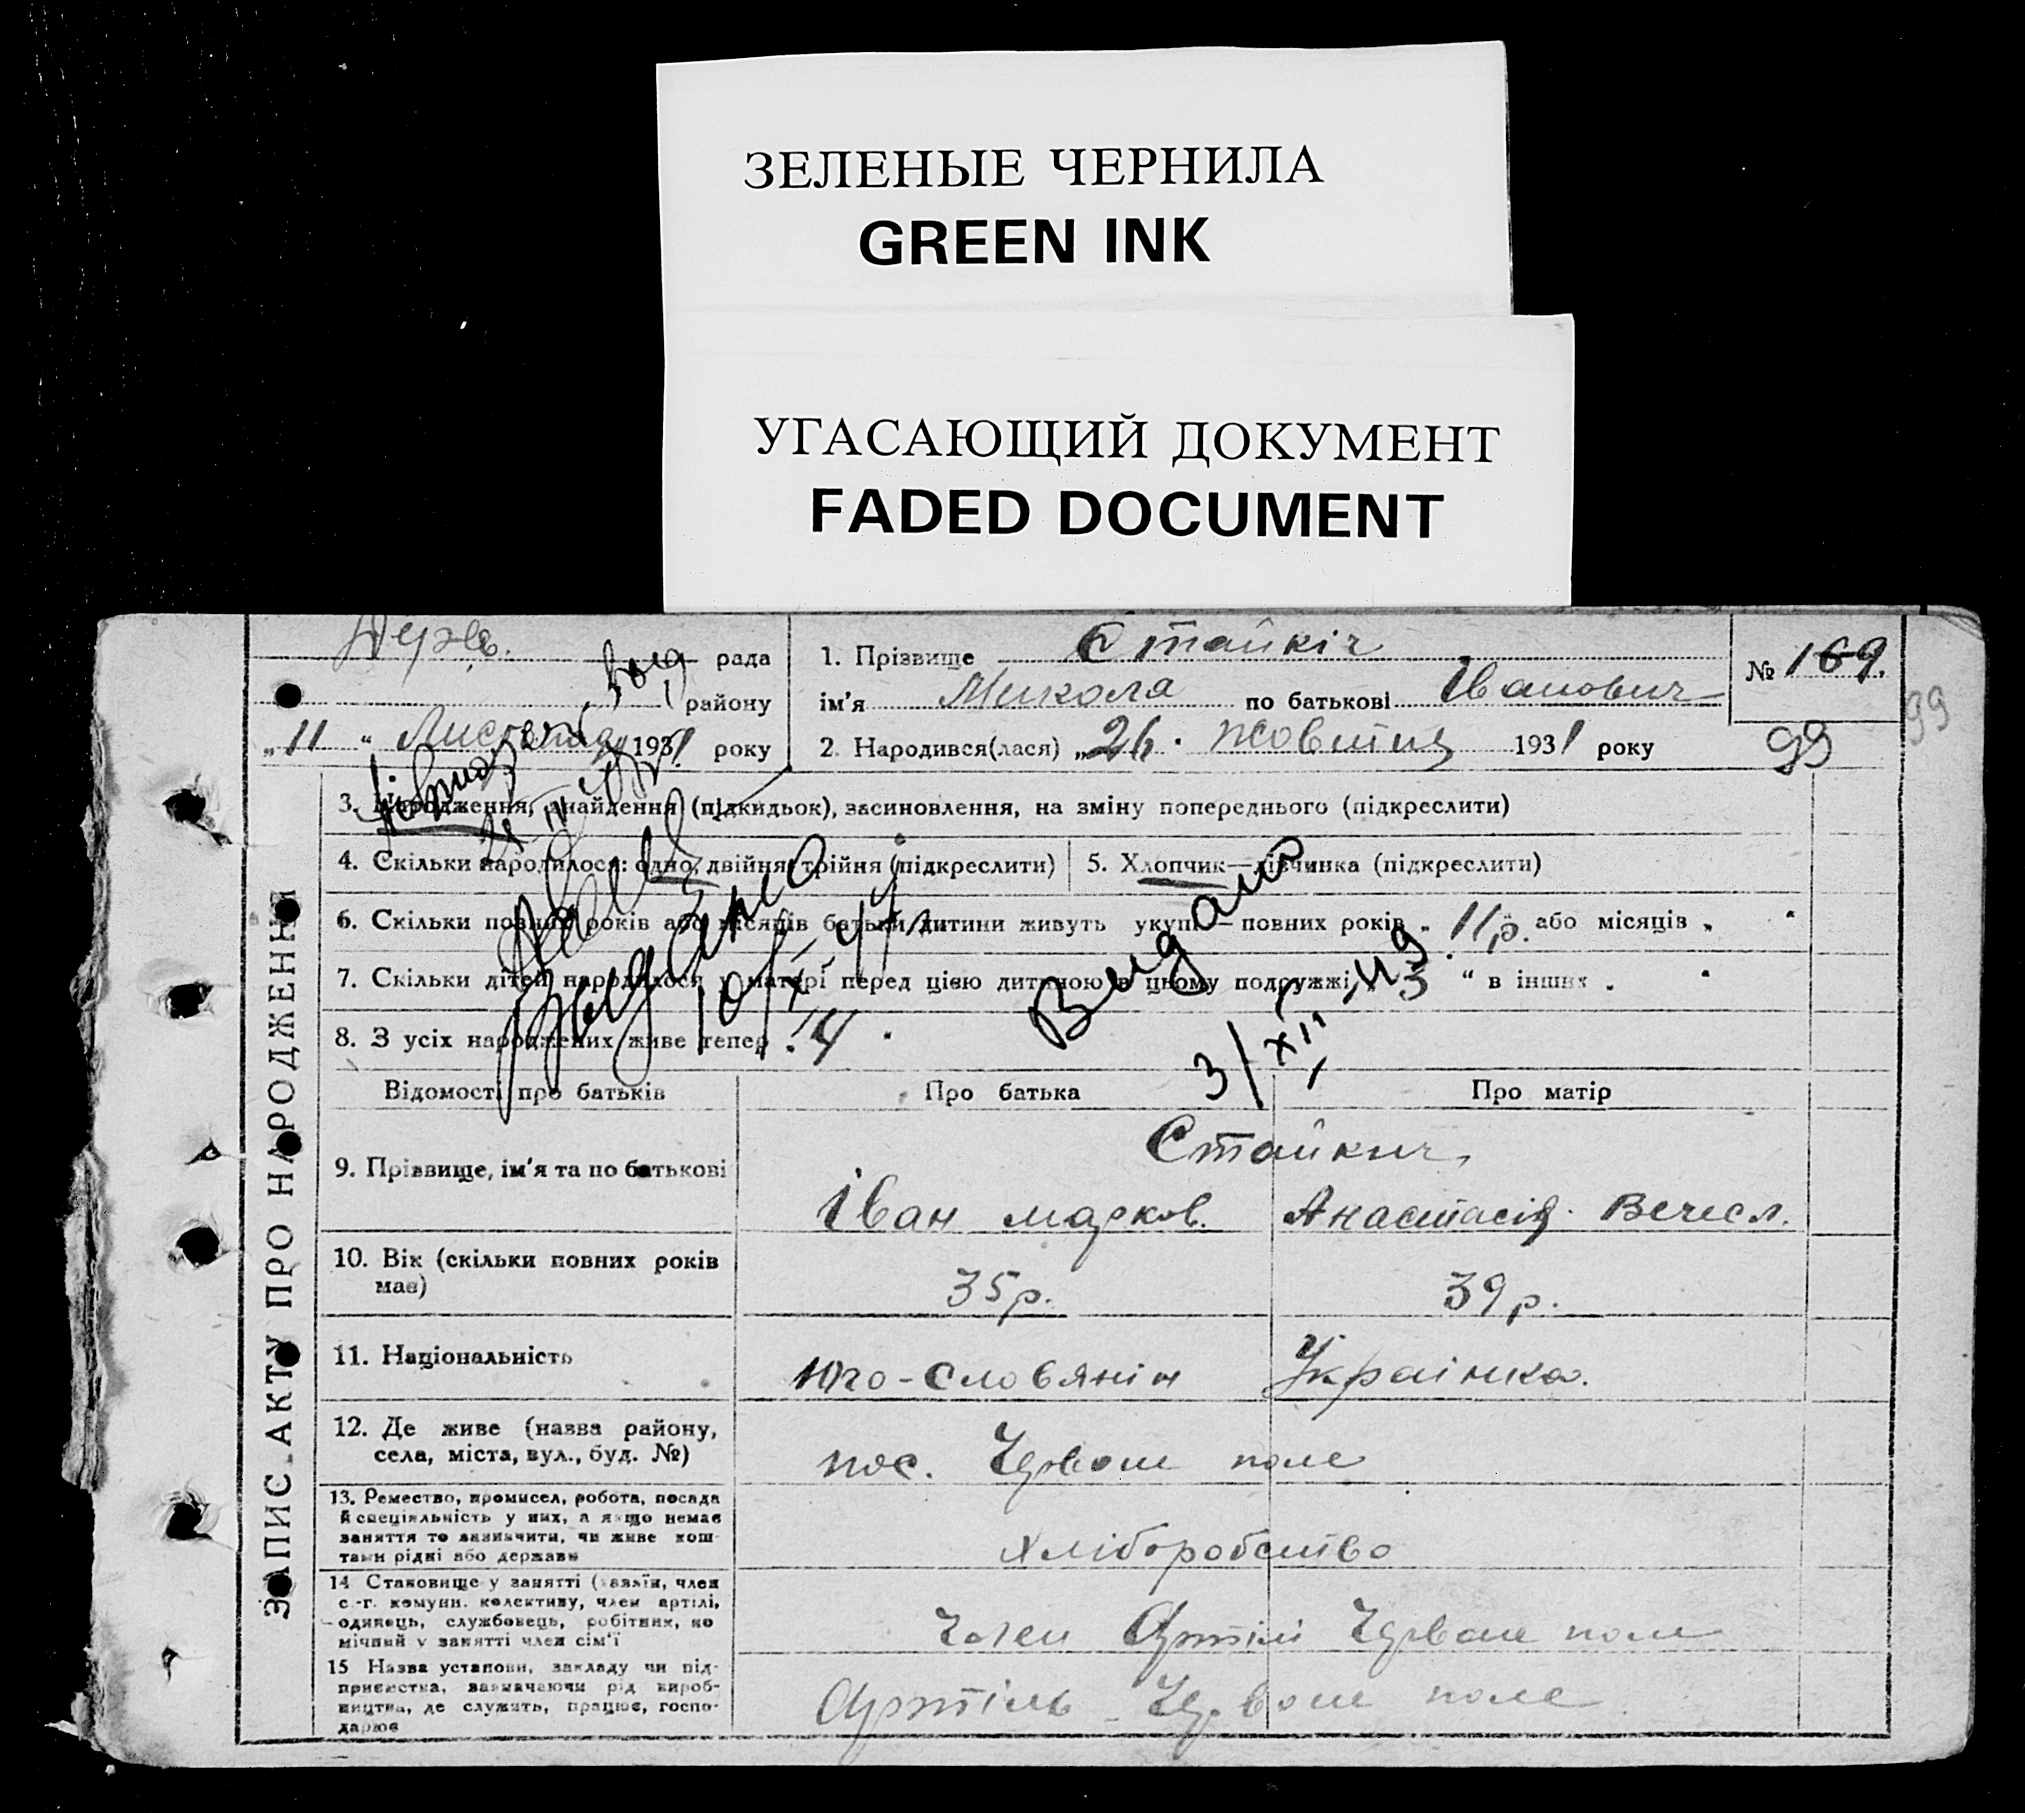 ЗЕЛЕНЫЕ ЧЕРНИЛА
GREEN INK
УГАСАЮЩИЙ ДОКУМЕНТ
FADED DOCUMENT
рада
району
„11“ Листопада 1931 року
1. Прізвище Стайкіч
ім'я Микола по батькові Іванович
2. Народився(лася) „26. Жовтня 1931 року
№ 169.
99
99
3. Народження, знайдення (підкидьок), засиновлення, на зміну попереднього (підкреслити)
4. Скільки народилося: одно, двійня, трійня (підкреслити)
5. Хлопчик—дівчинка (підкреслити)
6. Скільки повних років або місяців батьки дитини живуть укупі — повних років „11р. або місяців „ “
7. Скільки дітей народилося у матері перед цією дитиною в цьому подружжі „3“ в інших „ “
8. З усіх народжених живе тепер 4
Видано
10/X 41
Видано
3/XII 49
Відомості про батьків
Про батька
Про матір
9. Прізвище, ім'я та по батькові
Стайкич
Іван марков.
Анастасія Вечесл.
10. Вік (скільки повних років має)
35 р.
39 р.
11. Національність
Юго-словянін
Украінка.
12. Де живе (назва району,
села, міста, вул., буд. №)
пос. Червоне поле
13. Ремество, промисел, робота, посада
й спеціяльність у них, а якщо немає
заняття то зазначити, чи живе кош-
тами рідні або держави
Хліборобство
14 Становище у занятті (хазяїн, член
с.-г. комуни. колективу, член артілі,
одинець, службовець, робітник, по
мічний у занятті член сім'ї
Член Артілі Червоне поле
15 Назва установи, закладу чи під-
приємства, зазначаючи рід вироб-
ництва, де служить, працює, госпо-
дарює
Артіль Червоне поле
ЗАПИС АКТУ ПРО НАРОДЖЕННЯ